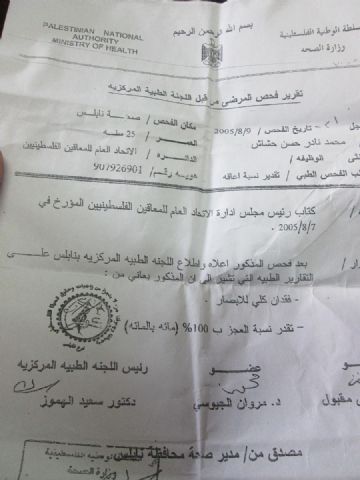 بسم الله الرحمن الرحيم
PALESTINIAN NATIONAL
AUTHORITY
MINISTRY OF HEALTH
سلطة الوطنية الفلسطينية
وزارة الصحه
تقرير فحص المرضى من قبل اللجنة الطبية المركزيه
تاريخ الفحص / 2005/8/9
مكان الفحص / صحة نابلس
محمد نادر حسن حشاش
العمر / 25 سنه
الوظيفه /
الدائره / الاتحاد العام للمعاقين الفلسطينيين
الفحص الطبي / تقدير نسبة اعاقه
هويه رقم / 907926901
كتاب رئيس مجلس ادارة الاتحاد العام للمعاقين الفلسطينيين المؤرخ في
2005/8/7 .
بعد فحص المذكور اعلاه واطلاع اللجنه الطبيه المركزيه بنابلس على
التقارير الطبيه التي تشير الى ان المذكور يعاني من :
- فقدان كلي للابصار .
- تقدر نسبة العجز ب 100% (مائه بالمائه)
عضو
رئيس اللجنه الطبيه المركزيه
مقبول
د. مروان الجيوسي
دكتور سعيد الهموز
مصدق من / مدير صحة محافظة نابلس
وزارة الصحة